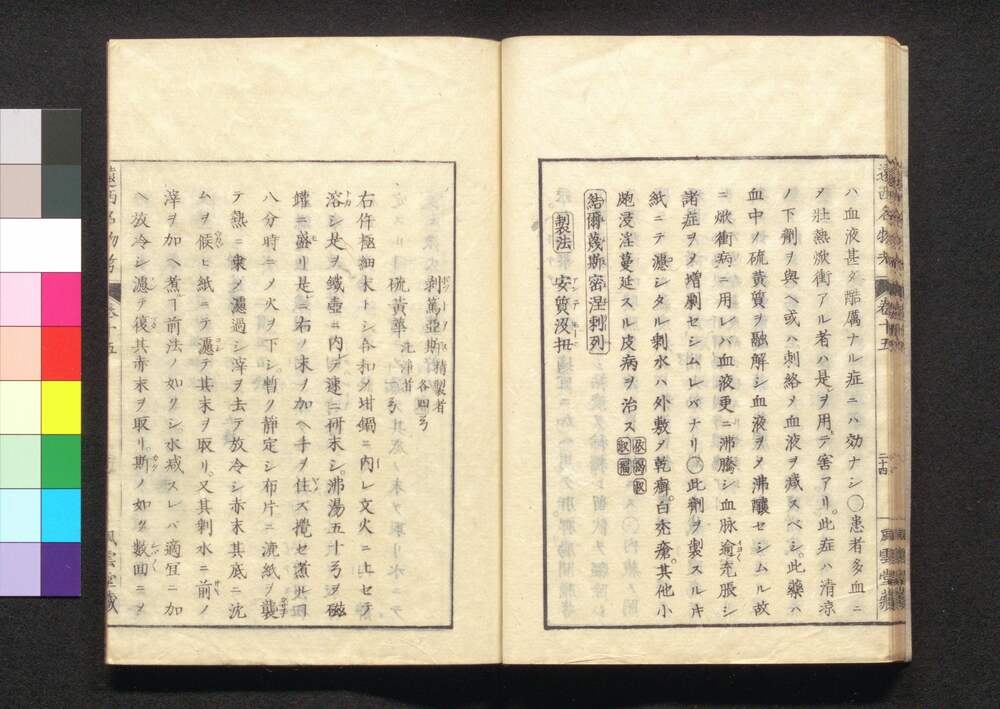 遠西名物考 巻十五 二十四 風雲堂蔵
ハ血液甚ダ酷厲ナル症ニハ効ナシ○患者多血ニ
ヲ壮熱焮衝アル者ハ是ヲ用テ害アリ。此症ハ清凉
ノ下劑ヲ與ヘ或ハ刺絡メ血液ヲ减スベシ。此藥ハ
血中ノ硫黄質ヲ融解シ血液ヲメ沸釀セシムル故
ニ焮衝病ニ用レバ血液更ニ沸騰シ血脉逾充脹シ
諸症ヲメ増劇セシムレバナリ○此劑ヲ製スルキ
紙ニテ濾シタル剥水ハ外敷メ乾癬。白禿瘡。其他小
皰浸淫蔓延スル皮病ヲ治ス
結爾蔑斯密涅剌列
製法 安質没扭
剥篤亞斯 精製者
硫黄華 洗浄者 各四ゟ
右件極細末トシ合和メ坩鍋ニ内レ文火ニ上セテ
溶シ是ヲ鐵壺ニ内テ速ニ研末シ。沸湯五十ゟヲ磁
罐ニ盛リ是ニ右ノ末ヲ加ヘ手ヲ住ズ攪セ煮ルヿ
八分時ニメ火ヲ下シ。暫ク静定シ布片ニ漉紙ヲ襲
テ熱ニ乗メ濾過シ滓ヲ去テ放冷シ赤末其底ニ沈
ムヲ候ヒ紙ニテ濾テ其末ヲ取リ。又其剥水ニ前ノ
滓ヲ加ヘ煮ヿ前法ノ如クシ水减スレバ適冝ニ加
ヘ放冷シ濾テ復其赤末ヲ取リ。斯ノ如ク數囬ニメ
遠西名物考 巻十五 風雲堂蔵